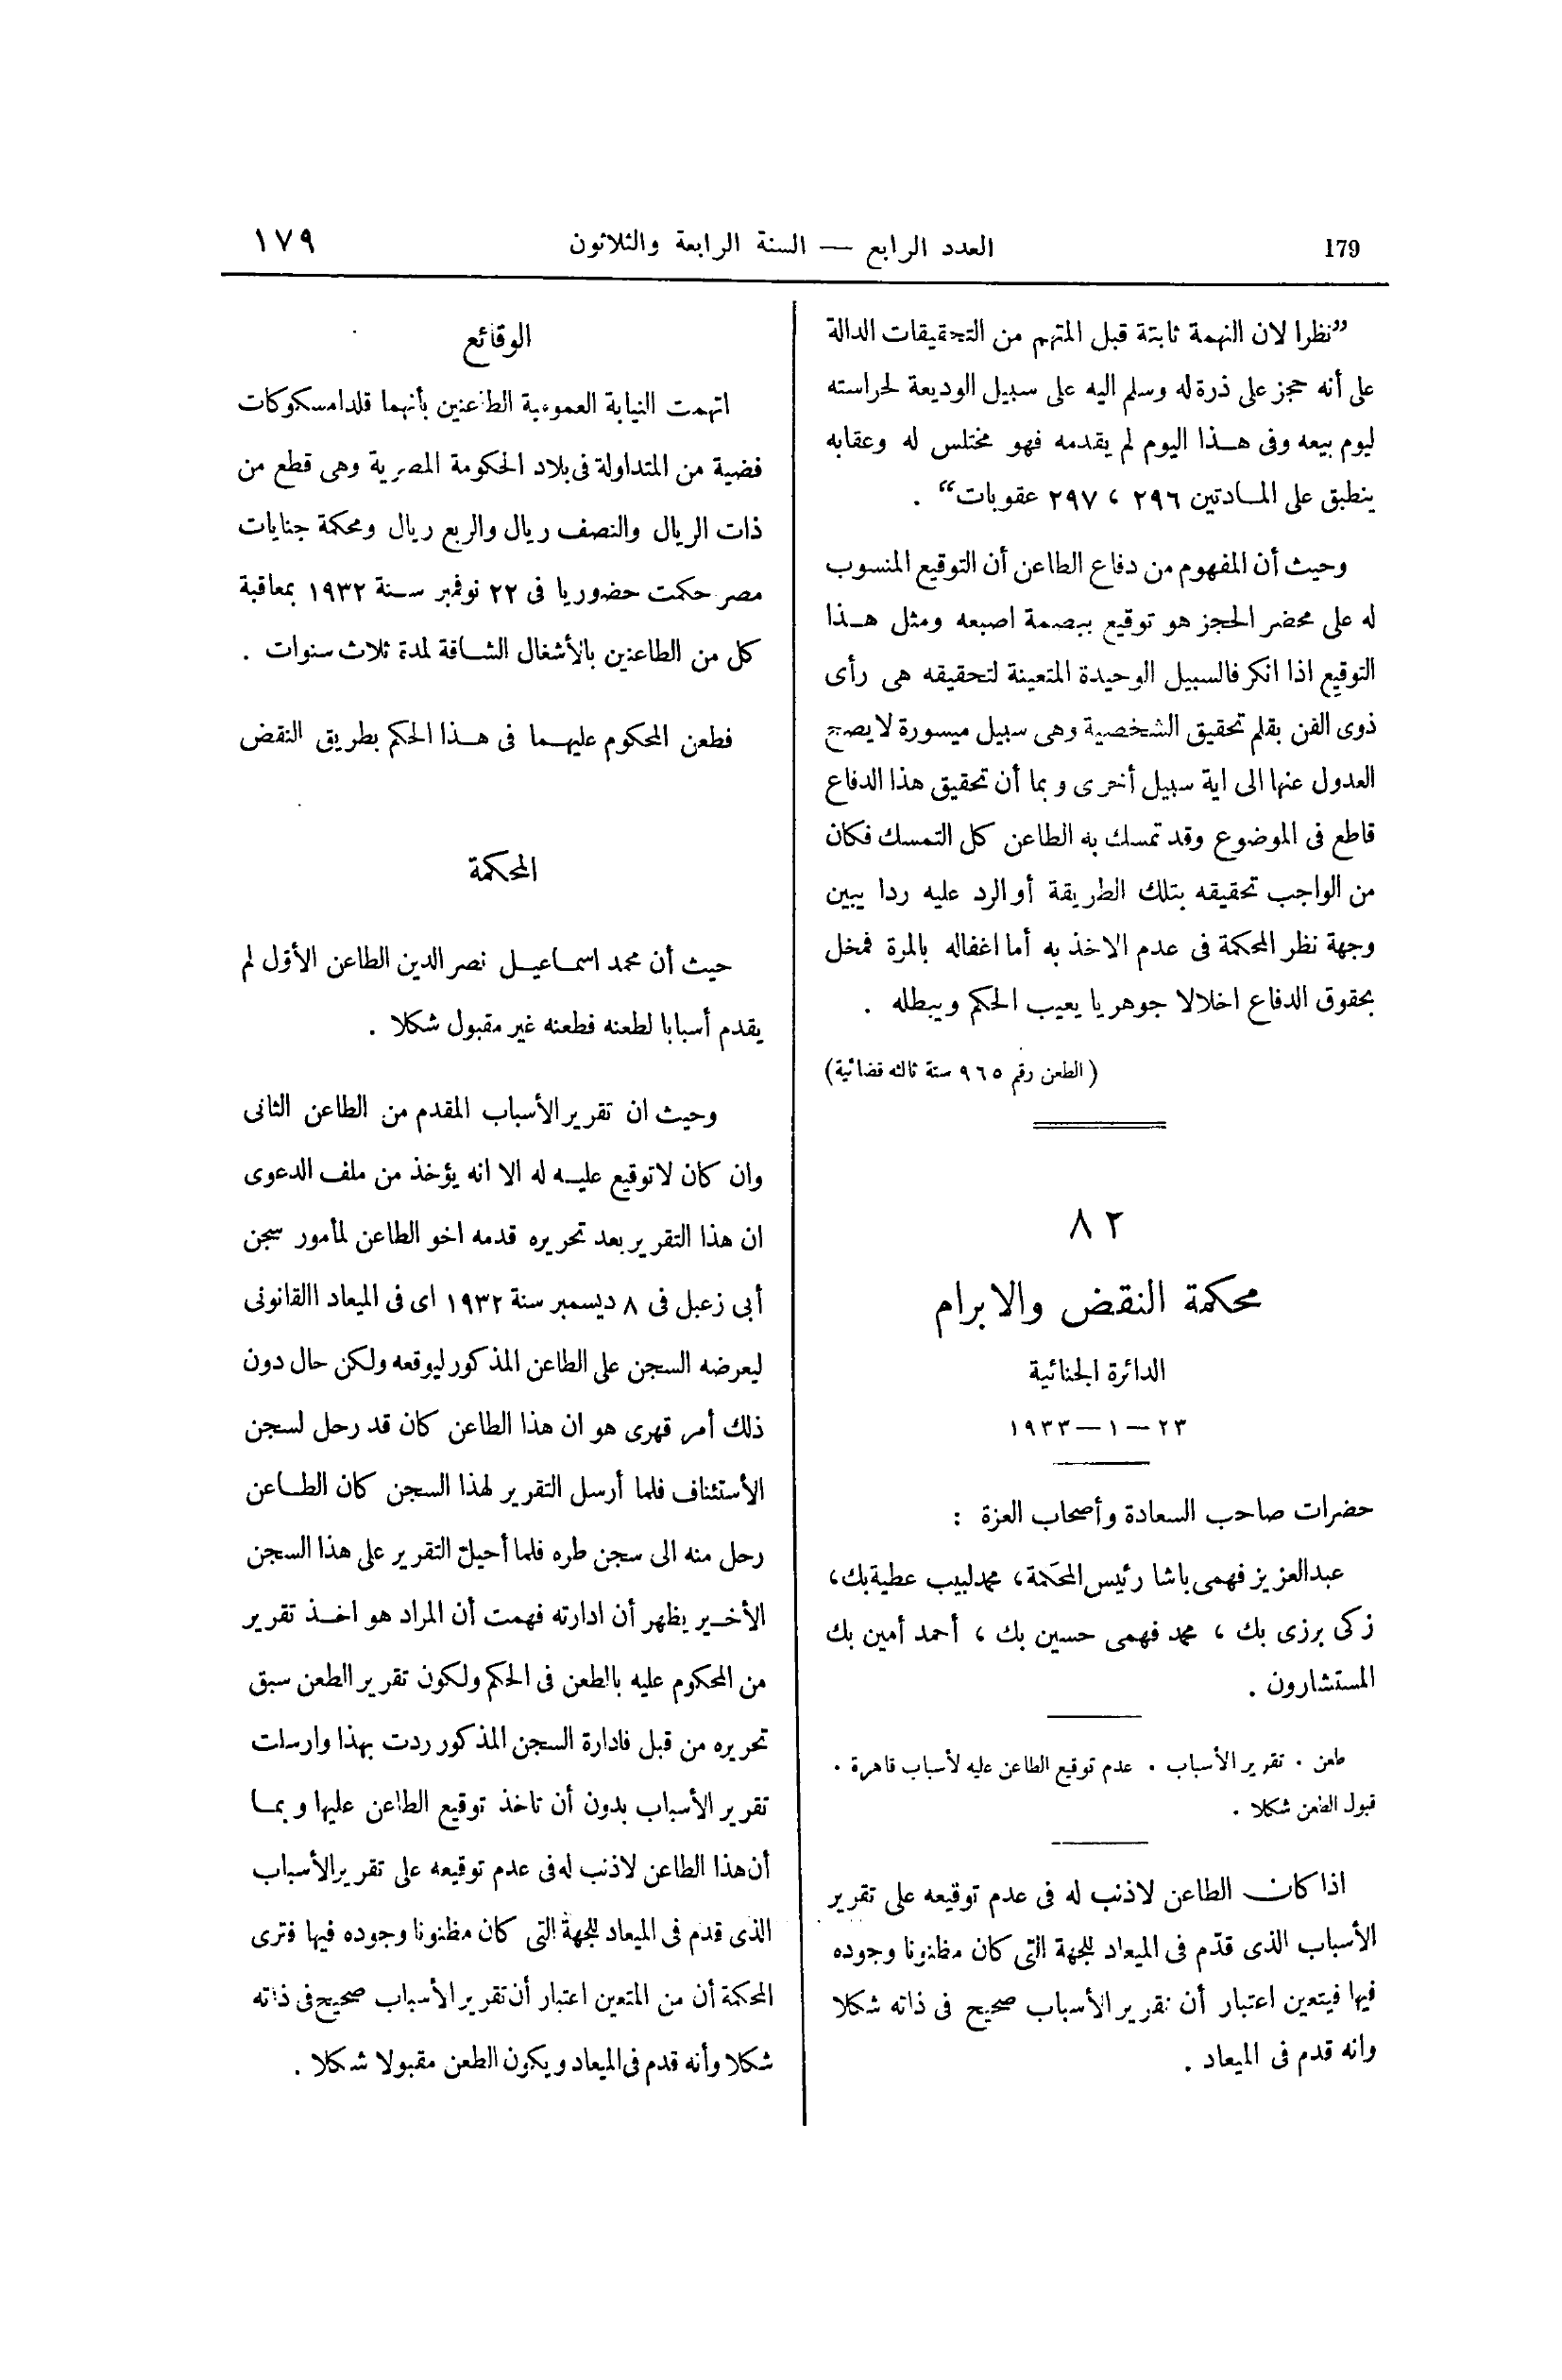 179
العدد الرابع — السنة الرابعة والثلاثون
١٧٩
”نظرا لان التهمة ثابتة قبل المتهم من التحقيقات الدالة
على أنه حجز على ذرة له وسلم اليه على سبيل الوديعة لحراسته
ليوم بيعه وفى هــذا اليوم لم يقدمه فهو مختلس له وعقابه
ينطبق على المــادتين ٢٩٦ ، ٢٩٧ عقوبات“ .
وحيث أن المفهوم من دفاع الطاعن أن التوقيع المنسوب
له على محضر الحجز هو توقيع ببصمة اصبعه ومثل هــذا
التوقيع اذا انكر فالسبيل الوحيدة المتعينة لتحقيقه هى رأى
ذوى الفن بقلم تحقيق الشخصية وهى سبيل ميسورة لا يصح
العدول عنها الى اية سبيل أخرى و بما أن تحقيق هذا الدفاع
قاطع فى الموضوع وقد تمسك به الطاعن كل التمسك فكان
من الواجب تحقيقه بتلك الطريقة أو الرد عليه ردا يبين
وجهة نظر المحكمة فى عدم الاخذ به أما اغفاله بالمرة فمخل
بحقوق الدفاع اخلالا جوهريا يعيب الحكم ويبطله .
( الطعن رقم ٩٦٥ سنة ثالثه قضائية )
٨٢
محكمة النقض والابرام
الدائرة الجنائية
٢٣ — ١ — ١٩٣٣
حضرات صاحب السعادة وأصحاب العزة :
عبد العزيز فهمى باشا رئيس المحكمة ، محمد لبيب عطية بك ،
زكى برزى بك ، محمد فهمى حسين بك ، أحمد أمين بك
المستشارون .
طعن . تقرير الأسباب . عدم توقيع الطاعن عليه لأسباب قاهرة .
قبول الطعن شكلا .
اذا كان الطاعن لاذنب له فى عدم توقيعه على تقرير
الأسباب الذى قدّم فى الميعاد للجهة التى كان مظنونا وجوده
فيها فيتعين اعتبار أن تقرير الأسباب صحيح فى ذاته شكلا
وانه قدم فى الميعاد .
الوقائع
اتهمت النيابة العمومية الطاعنين بأنهما قلدا مسكوكات
فضية من المتداولة فى بلاد الحكومة المصرية وهى قطع من
ذات الريال والنصف ريال والربع ريال ومحكمة جنايات
مصر حكمت حضوريا فى ٢٢ نوفمبر ســنة ١٩٣٢ بمعاقبة
كل من الطاعنين بالأشغال الشــاقة لمدة ثلاث سنوات .
فطعن المحكوم عليهــما فى هــذا الحكم بطريق النقض
المحكمة
حيث أن محمد اسمــاعيــل نصر الدين الطاعن الأوّل لم
يقدم أسبابا لطعنه فطعنه غير مقبول شكلا .
وحيث ان تقرير الأسباب المقدم من الطاعن الثانى
وان كان لا توقيع عليــه له الا انه يؤخذ من ملف الدعوى
ان هذا التقرير بعد تحريره قدمه اخو الطاعن لمأمور سجن
أبى زعبل فى ٨ ديسمبر سنة ١٩٣٢ اى فى الميعاد االقانونى
ليعرضه السجن على الطاعن المذكور ليوقعه ولكن حال دون
ذلك أمر قهرى هو ان هذا الطاعن كان قد رحل لسجن
الأستئناف فلما أرسل التقرير لهذا السجن كان الطــاعن
رحل منه الى سجن طره فلما أحيل التقرير على هذا السجن
الأخــير يظهر أن ادارته فهمت أن المراد هو اخــذ تقرير
من المحكوم عليه بالطعن فى الحكم ولكون تقرير الطعن سبق
تحريره من قبل فادارة السجن المذكور ردت بهذا وارسلت
تقرير الأسباب بدون أن تاخذ توقيع الطاعن عليها و بمــا
أن هذا الطاعن لاذنب له فى عدم توقيعه على تقرير الأسباب
الذى قدم فى الميعاد للجهة التى كان مظنونا وجوده فيها فترى
المحكمة أن من المتعين اعتبار أن تقرير الأسباب صحيح فى ذاته
شكلا وأنه قدم فى الميعاد ويكون الطعن مقبولا شكلا .